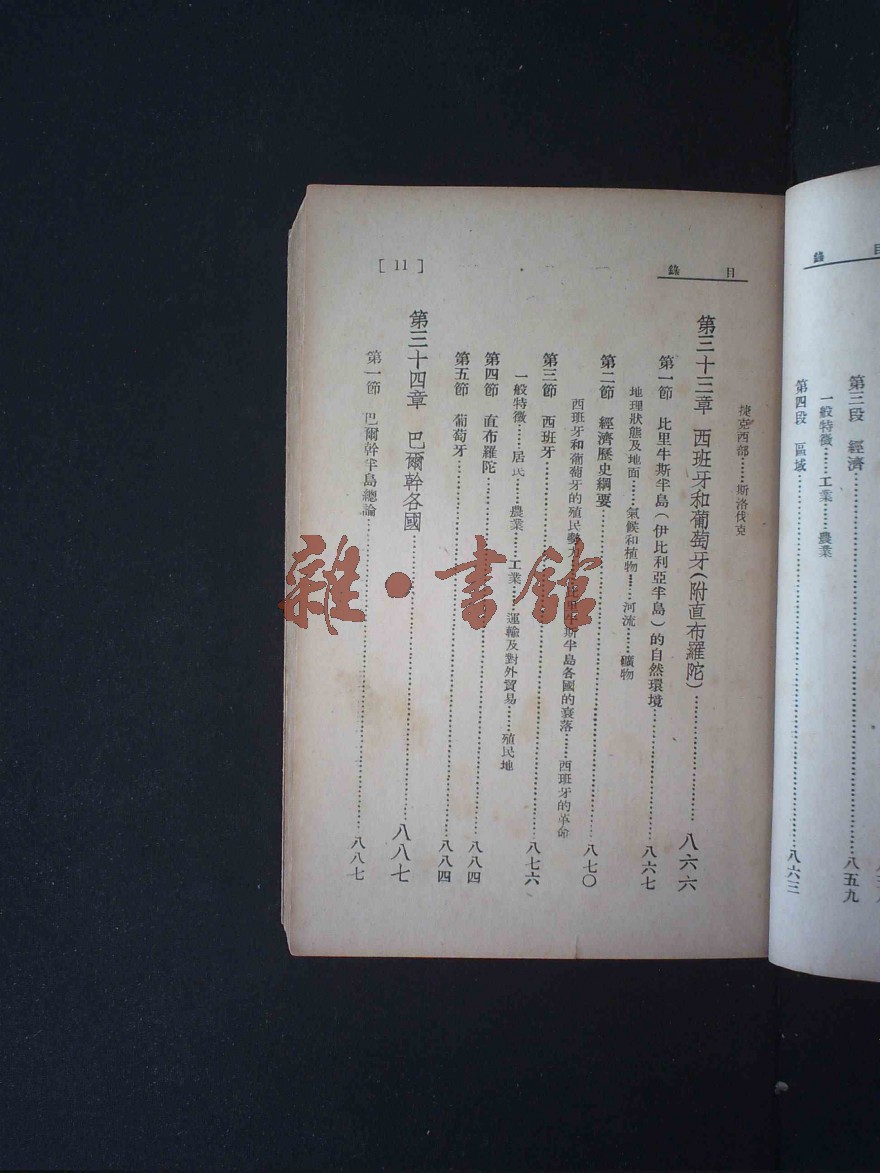 目錄
第三段　經濟……八五九
一般特徵……工業……農業
第四段　區域……八六三
目錄
[ 11 ]
捷克西部……斯洛伐克
第三十三章　西班牙和葡萄牙(附直布羅陀)……八六六
第一節　比里牛斯半島(伊比利亞半島)的自然環境……八六七
地理狀態及地面……氣候和植物……河流……礦物
第二節　經濟歷史綱要……八七〇
西班牙和葡萄牙的殖民勢力……比里牛斯半島各國的衰落……西班牙的革命
第三節　西班牙……八七六
一般特徵……居民……農業……工業……運輸及對外貿易……殖民地
第四節　直布羅陀……八八四
第五節　葡萄牙……八八四
第三十四章　巴爾幹各國……八八七
第一節　巴爾幹半島總論……八八七
雜·書館